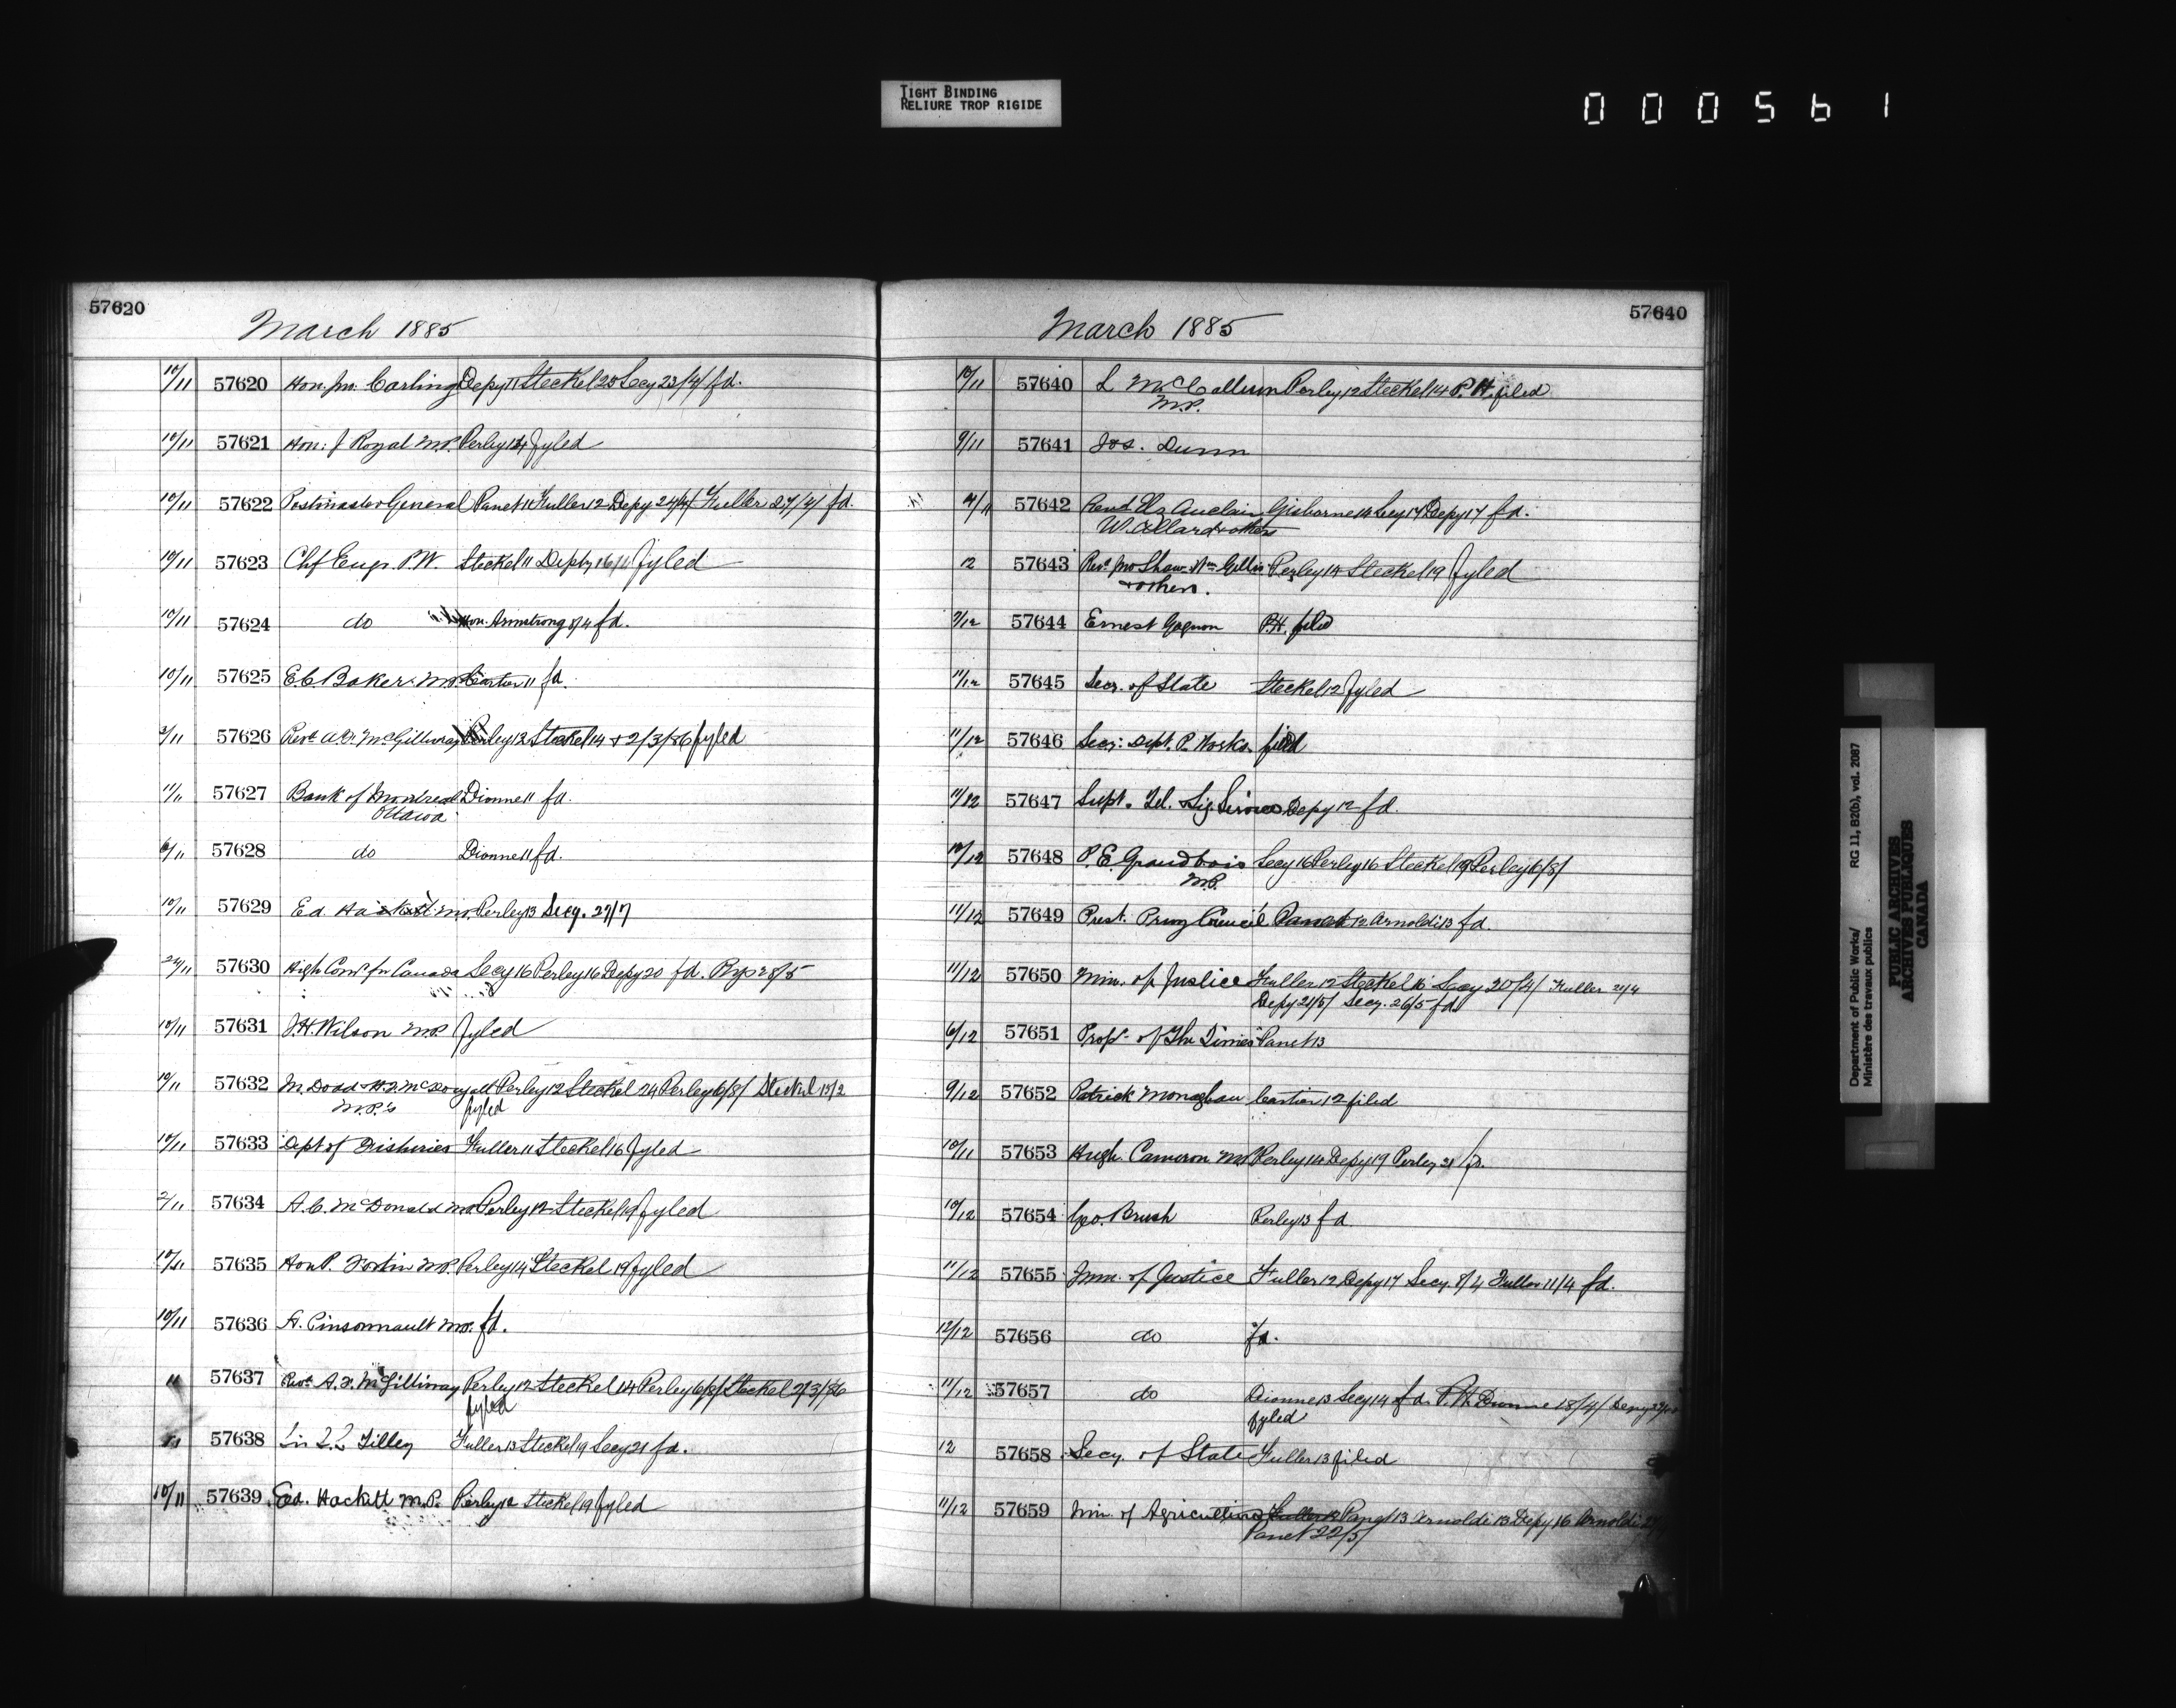 TIGHT BINDING
RELIURE TROP RIGIDE
000561
57620
March 1885
10/11 57620 Hon. Jno. Carling Depy 11 Steckel 20 Secy 23/4/ fd.
10/11 57621 Hon: J Royal M.P. Perley 14 fyled
10/11 57622 Postmaster General Panet 11 Fuller 12 Depy 24/4/ Fuller 27/4/ fd.
10/11 57623 Chf Engr. P.W. Steckel 11 Depty 16/ fyled
10/11 57624 do Armstrong 8/4 fd.
10/11 57625 E.C. Baker M.P. Cartier 11 fd.
2/11 57626 Revt. McGillivray Perley 12 Steckel 14 & 2/3/86 fyled
11/11 57627 Bank of Montreal Dionne 11 fd.
Ottawa
6/11 57628 do Dionne 11 fd.
10/11 57629 Ed Hackett M.P. Perley 13 Secy. 27/7
24/11 57630 High Comr. for Canada Secy 16 Perley 16 Depy 20 fd. 28/5
10/11 57631 J.H. Wilson M.P. fyled
10/11 57632 M. Dodd H.F. McDougall Perley 12 Steckel 24 Perley 6/8/ Steckel 13/2
M.P.'s fyled
10/11 57633 Dept of Fisheries Fuller 11 Steckel 16 fyled
2/11 57634 A.C. McDonald M.P. Perley 12 Steckel 19 fyled
10/11 57635 Hon P. Fortin M.P. Perley 14 Steckel 19 fyled
10/11 57636 A. Pinsonnault M.P. fd.
11 57637 Revt. A.F. McGillivray Perley 12 Steckel 14 Perley 6/8/ Steckel 2/3/86
fyled
57638 Sir Tilley Fuller 13 Steckel 19 Secy 21 fd.
10/11 57639 Ed. Hackett M.P. Perley 12 Steckel 19 fyled
57640
March 1885
10/11 57640 L McCallum Perley 12 Steckel 14 P.H. filed
M.P.
9/11 57641 Jos. Dunn
4/11 57642 Revd Auclair Gisborne 14 Secy 17 Depy 17 fd.
W. Allard & others
12 57643 Revd. Jno Shaw Wm Gillis Perley 14 Steckel 19 fyled
& others.
7/12 57644 Ernest Gagnon P.H. filed
11/12 57645 Secr. of State Steckel 12 fyled
11/12 57646 Secy: Dept. P. Works filed
11/12 57647 Supt. Tel. & Sig. Service Depy 12 fd.
10/12 57648 P.E. Grandbois Secy 16 Perley 16 Steckel 19 Perley 6/8/
M.P.
11/12 57649 Prest. Privy Council Panet 12 Arnoldi 13 fd.
11/12 57650 Min. of Justice Fuller 12 Steckel 16 Secy 20/4/ Fuller 21/4
Depy 21/5/ Secy. 26/5 fd
6/12 57651 Prop. of The Times Panet 13
9/12 57652 Patrick Monaghan Cartier 12 filed
10/11 57653 Hugh Cameron M.P. Perley 14 Depy 19 Perley 21 fd.
10/12 57654 Geo. Brush Perley 13 fd.
11/12 57655 Min. of Justice Fuller 12 Depy 17 Secy. 8/4 Fuller 11/4 fd.
12/12 57656 do fd.
11/12 57657 do Dionne 13 Secy 14 fd. P.H. Dionne 18/4/ Depy
fyled
12 57658 Secy. of State Fuller 13 filed
11/12 57659 Min. of Agriculture Fuller 13 Panet 13 Arnoldi 13 Depy 16 Arnoldi
Panet 22/5/
Department of Public Works/ RG 11, B2(b), vol. 2087
Ministère des travaux publics
PUBLIC ARCHIVES
ARCHIVES PUBLIQUES
CANADA